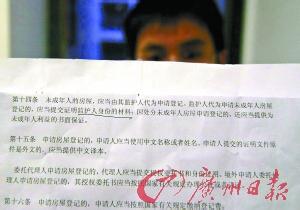 第十四条 未成年人的房屋，应当由其监护人代为申请登记。监护人代为申请未成年人房屋
登记的，应当提交证明监护人身份的材料；因处分未成年人房屋申请登记的，还应当提供为
未成年人利益的书面保证。
第十五条 申请房屋登记的，申请人应当使用中文名称或者姓名。申请人提交的证明文件原
件是外文的，应当提供中文译本。
委托代理人申请房屋登记的，代理人应当提交授权委托书和身份证明。境外申请人委托
代理人申请房屋登记的，其授权委托书应当按照国家有关规定办理
第十六条 申请房屋登记的，申请人应当按照国家有关规定缴纳登记费。
广州日报